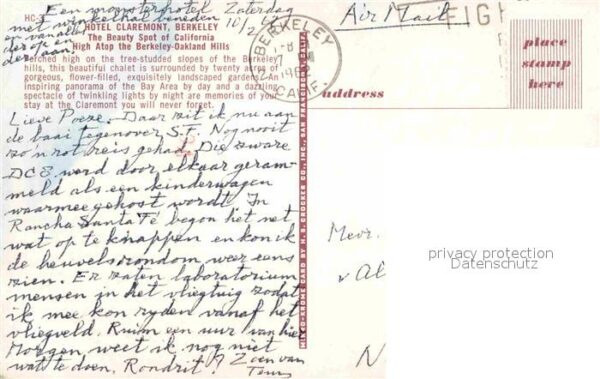 Een monsterhotel Zaterdag
met winkelhal beneden 10/2
HC-3
HOTEL CLAREMONT, BERKELEY
The Beauty Spot of California
High Atop the Berkeley-Oakland Hills
Perched high on the tree-studded slopes of the Berkeley
hills, this beautiful chalet is surrounded by twenty acres of
gorgeous, flower-filled, exquisitely landscaped gardens. An
inspiring panorama of the Bay Area by day and a dazzling
spectacle of twinkling lights by night are memories of your
stay at the Claremont you will never forget.
Lieve Poeze. Daar zit ik nu aan
de baai tegenover S.F. Nog nooit
zo'n rot reis gehad. Die zware
DC8 werd door elkaar geram-
meld als een kinderwagen
waarmee gehost wordt. In
Rancha Santa Fé begon het net
wat op te knappen en kon ik
de heuvels rondom weer eens
zien. Er zaten laboratorium
mensen in het vliegtuig zodat
ik mee kon ryden vanaf het
vliegveld. Ruim een uur van hier
Morgen, weet ik nog niet
wat te doen. Rondrit? Zoen van
Teun
Air Mail
BERKELEY
CALIF.
place
stamp
here
address
MIKE-KROME CARD BY H. S. CROCKER CO., INC., SAN FRANCISCO
Mevr.
v Al
N
privacy protection
Datenschutz